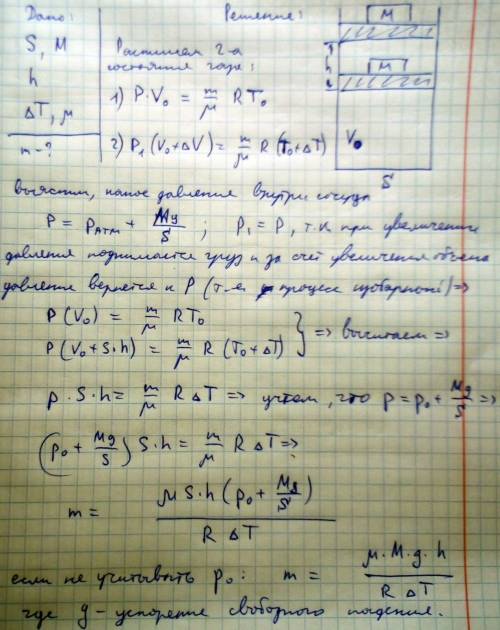 Дано:
S, M
h
ΔT, μ
m-?
Решение:
Распишем 2-а
состояния газа:
1) P·V₀ = m/μ RT₀
2) P₁(V₀+ΔV) = m/μ R(T₀+ΔT)
M
h
M
V₀
S
выясним, какое давление внутри сосуда
P = Pатм + Mg/S ; P₁ = P, т.к. при увеличение
давления поднимается груз и за счет увеличения объема
давление вернется к P (т.е. процесс изобарный) =>
P(V₀) = m/μ RT₀
P(V₀+S·h) = m/μ R(T₀+ΔT) } => вычитаем =>
p·S·h = m/μ RΔT => учтем, что p = p₀ + Mg/S =>
(p₀ + Mg/S) S·h = m/μ RΔT =>
m = μ S·h (p₀ + Mg/S) / RΔT
если не учитывать p₀: m = μ·M·g·h / RΔT
где g - ускорение свободного падения.